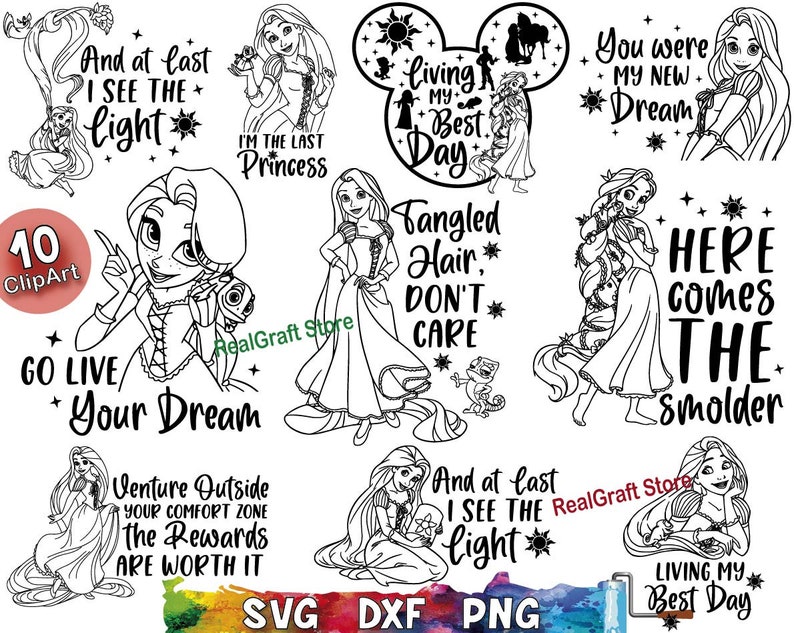 And at last
I SEE THE
light
I'M THE LAST
Princess
living
MY
Best
Day
You were
MY NEW
Dream
10
ClipArt
GO LIVE
Your Dream
Tangled
Hair,
DON'T
CARE
RealGraft Store
HERE
comes
THE
smolder
Venture Outside
YOUR COMFORT ZONE
the Rewards
ARE WORTH IT
And at last
I SEE THE
light
RealGraft Store
LIVING MY
Best Day
SVG DXF PNG